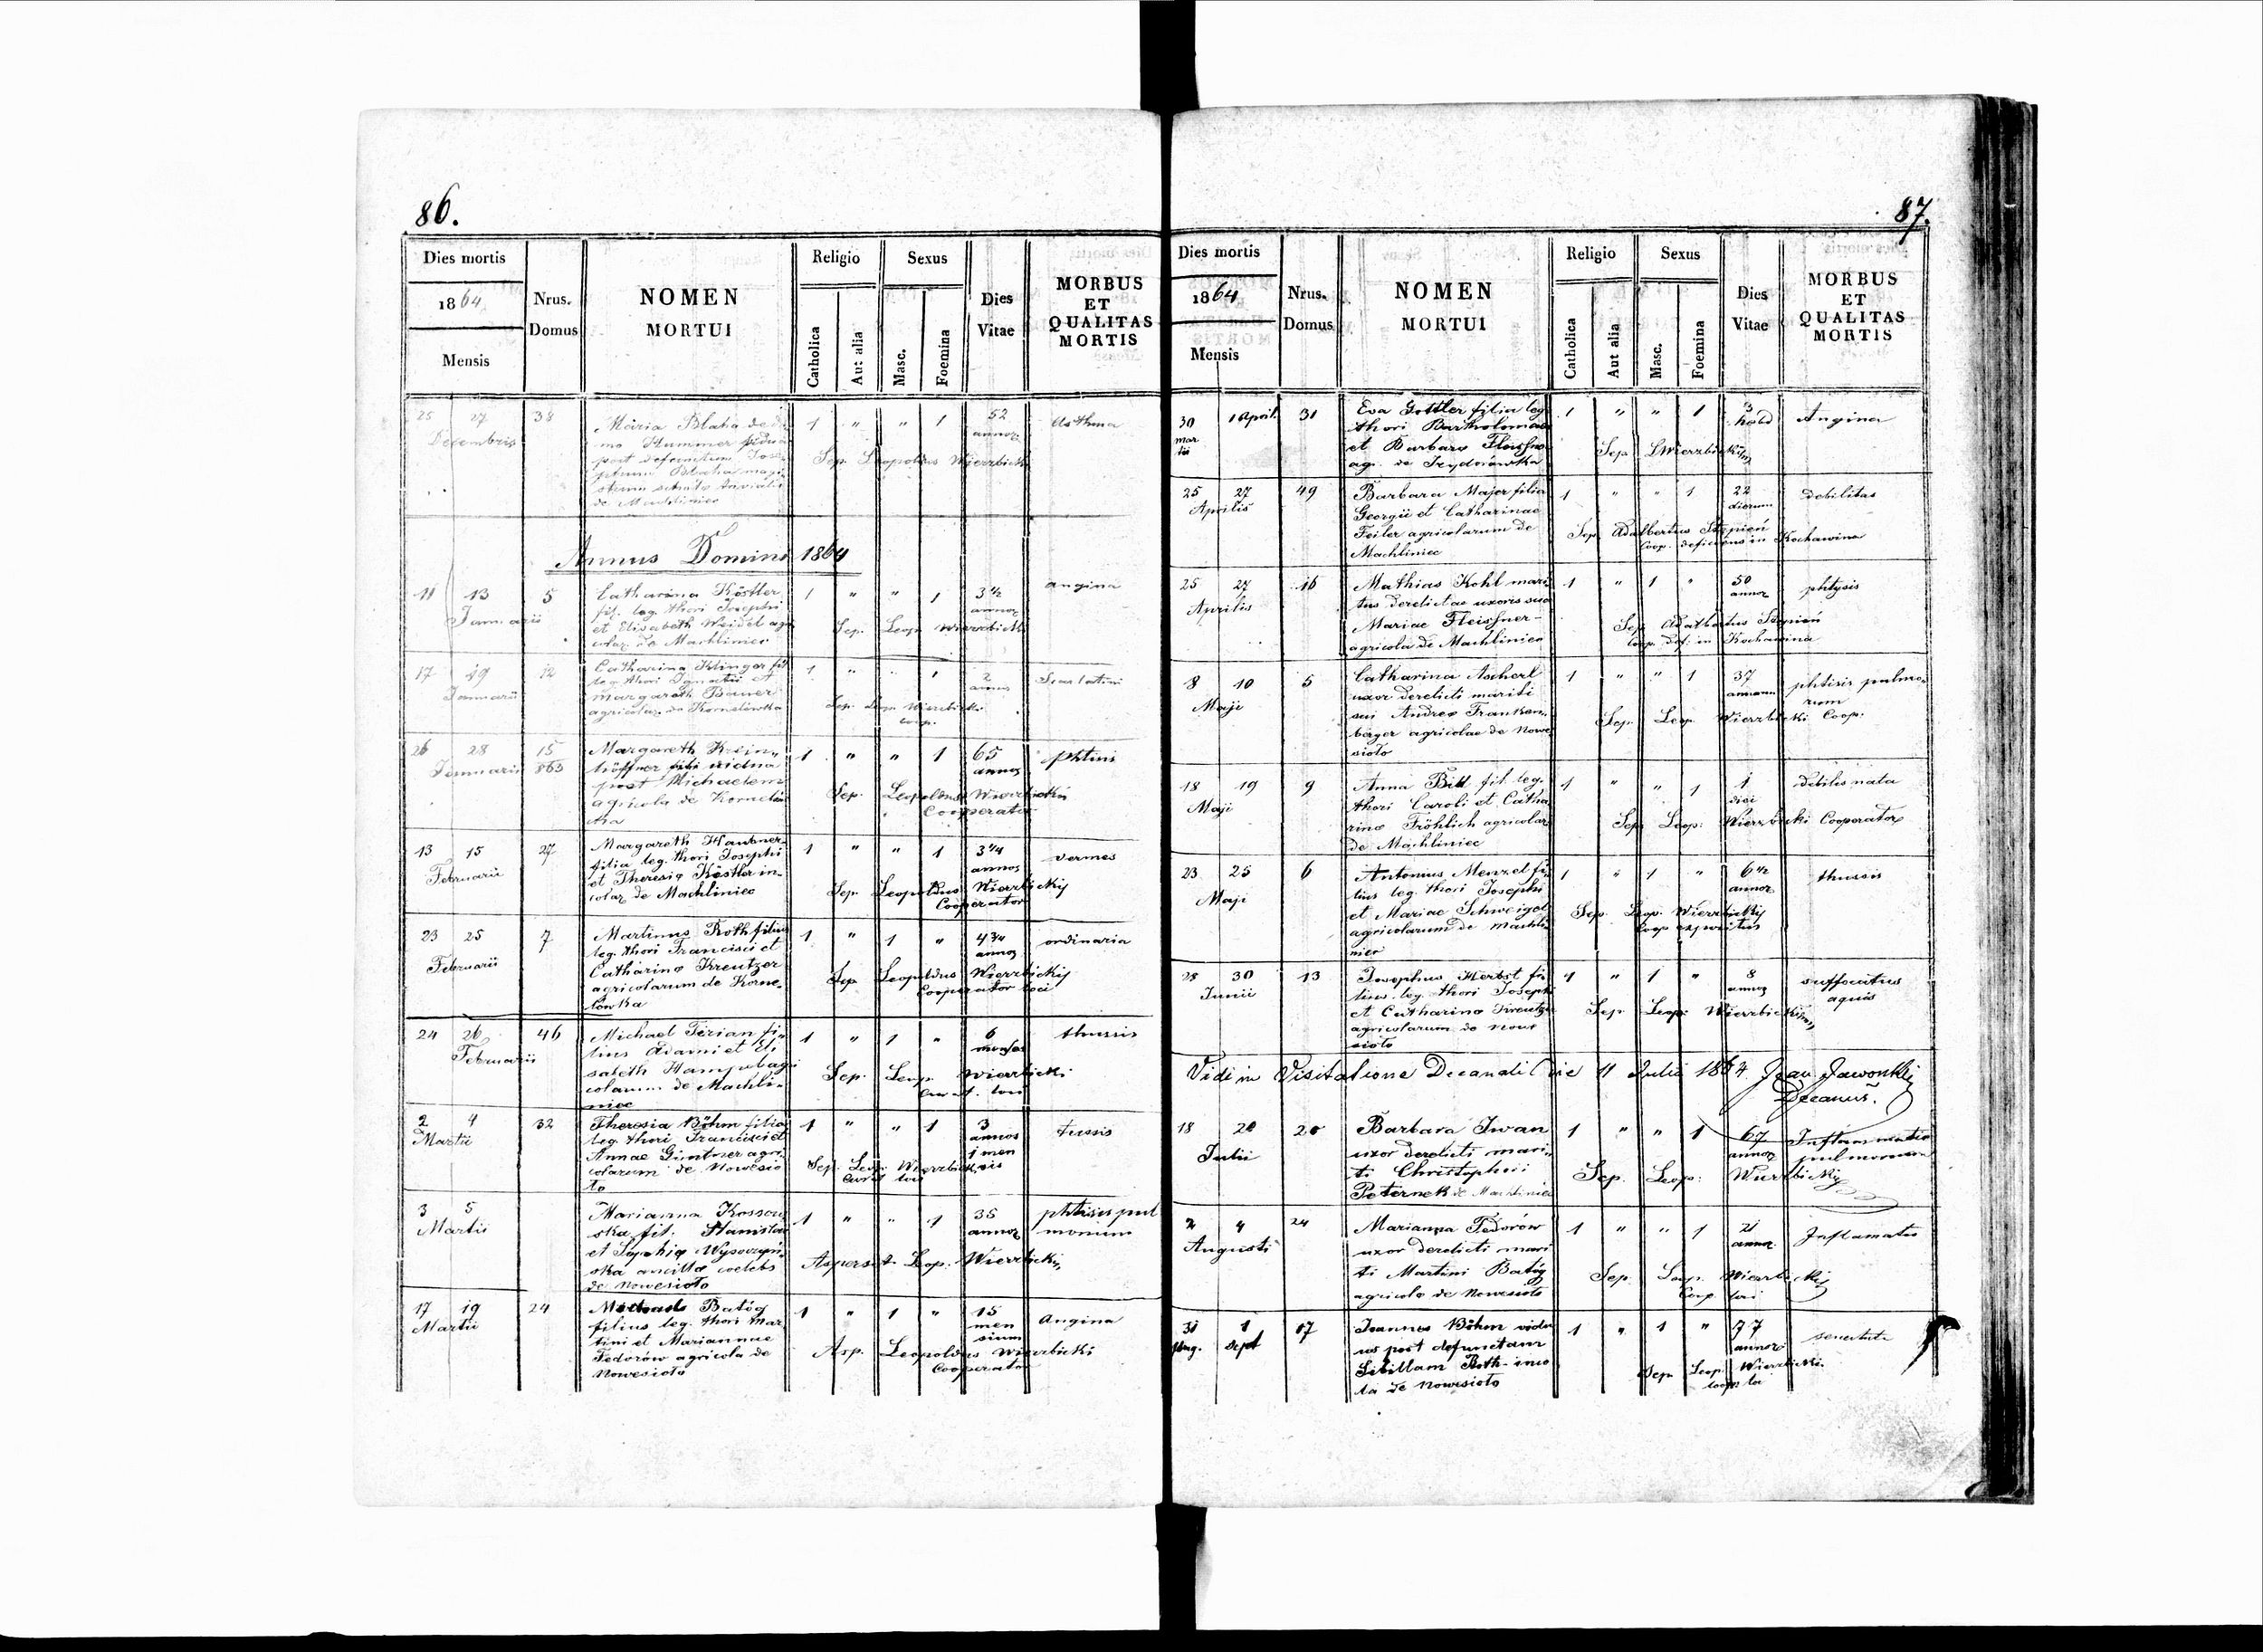 86.
Dies mortis
1864
Mensis
Nrus.
Domus
NOMEN
MORTUI
Religio
Catholica
Aut alia
Sexus
Masc.
Foemina
Dies
Vitae
MORBUS
ET
QUALITAS
MORTIS
25 27 38 Maria Blaha de do 1 " " 1 52 Asthma
Decembris mo Hummer annor
post defunctum Jose
Sep. Leopoldus Wierzbicki
phum Blaha magi
strum
de Machliniec
Annus Domini 1864
11 13 5 Catharina Köstler 1 " " 1 3½ angina
Januarii fil. leg. thori Josephi annor
et Elisabeth Weidel agri
Sep. Leop. Wierzbicki
colar. de Machliniec
17 19 12 Catharina Klinger fil 1 " " 1 2
Januarii leg. thori Ignatii et
Margareth Bauer
agricolar. de Kornelówka
Sep. Leop. Wierzbicki
coop.
26 28 15 Margareth Krein- 1 " " 1 65 phtisis
Januarii 863 höffner vidua annor
post Michaelem
Sep. Leopoldus Wierzbicki
agricola de Kornelów
Cooperator
ka
13 15 27 Margareth Hautner 1 " " 1 3¼ vermes
Februarii filia leg. thori Josephi annor
et Theresia Köstler in-
Sep. Leopoldus Wierzbickij
colar de Machliniec
Cooperator
23 25 7 Martinus Roth filius 1 " 1 " 4¾ ordinaria
Februarii leg. thori Francisci et annor
Catharina Kreutzer
Sep Leopoldus Wierzbickij
agricolarum de Korne-
Cooperator loci
lówka
24 26 46 Michael Terian fi- 1 " 1 " 6 thussis
Februarii lius Adami et Eli menses
sabeth
Sep. Leop. Wierzbicki
colarum de Machli-
niec
2 4 32 Theresia Böhm filia 1 " " 1 3 tussis
Martii leg. thori Francisci et annos
Annae Gintner agri 1 men
colarum de Nowesio sis
Sep. Leop. Wierzbicki
to
3 5 Marianna Kossow 1 " " 1 35 phtisis pul
Martii ska fil. Stanislai annor monum
et Sophia Wysoczyń
ska ancilla coelebs
Aspersit Leop. Wierzbickij
de Nowesioło
17 19 24 Batóg 1 " 1 " 15 Angina
Martii filius leg. thori Mar men
tini et Mariannae sium
Asp. Leopoldus Wierzbicki
Fedorów agricola de
Cooperator
Nowesioło
87.
Dies mortis
1864
Mensis
Nrus.
Domus
NOMEN
MORTUI
Religio
Catholica
Aut alia
Sexus
Masc.
Foemina
Dies
Vitae
MORBUS
ET
QUALITAS
MORTIS
30 1 April. 31 Eva Gottler filia leg 1 " " 1 3 Angina
mar thori Bartholomaei
tii et Barbara Fleissner
Sep LWierzbicki
agr. de Izydorówka
25 27 49 Barbara Majer filia 1 " " 1 22 debilitas
Aprilis Georgii et Catharinae dierum
Feiler agricolarum de
Sep. Adalbertus Stępień
Coop. deficiens in Kochawina
Machliniec
25 27 16 Mathias Kohl mari 1 " 1 " 50 phtysis
Aprilis tus derelictae uxoris sua annor
Mariae Fleissner-
Sep. Adalbertus Stępień
agricola de Machliniec
Coop. def. in Kochawina
8 10 5 Catharina Ascherl 1 " " 1 37 phtisis pulmo-
Maji uxor derelicti mariti annorum rum
sui Andrea Franken-
Sep. Leop. Wierzbicki Coop.
berger agricolae de Nowe
sioło
18 19 9 Anna Bill fil. leg. 1 " " 1 1 debilis nata
Maji thori Caroli et Catha diei
rina Fröhlich agricolar
Sep. Leop: Wierzbicki Cooperator
de Machliniec
23 25 6 Antonius Menzel fi- 1 " 1 " 6½ thussis
Maji lius leg. thori Josephi annor
et Mariae Schweigel
Sep. Leop. Wierzbickij
agricolarum de Machli-
Coop expositus
niec
28 30 13 Josephus Herbst fi- 1 " 1 " 8 suffocatus
Junii lius leg. thori Josephi annor aquis
et Catharina Kreutzer
Sep Leop: Wierzbicki
agricolarum de Nowe
sioło
Vidi in Visitatione Decanali die 11 Julii 1864
Decanus.
18 20 20 Barbara Iwan 1 " " 1 67 Inflammatio
Julii uxor derelicti mari- annor pulmonum
ti Christopheri
Sep. Leop: Wierzbickij
Peternek de Machliniec
2 4 24 Marianna Fedorów 1 " " 1 21 Inflamatio
Augusti uxor derelicti mari annor
ti Martini Batóg
Sep. Leop. Wierzbickij
agricola de Nowesioło
Coop. loci
31 1 17 Joannes Böhm vidu 1 " 1 " 77 senectute
Aug. Sept us post defunctam annor
Sibillam Roth inco
Sep Leop. Wierzbicki
la de Nowesioło